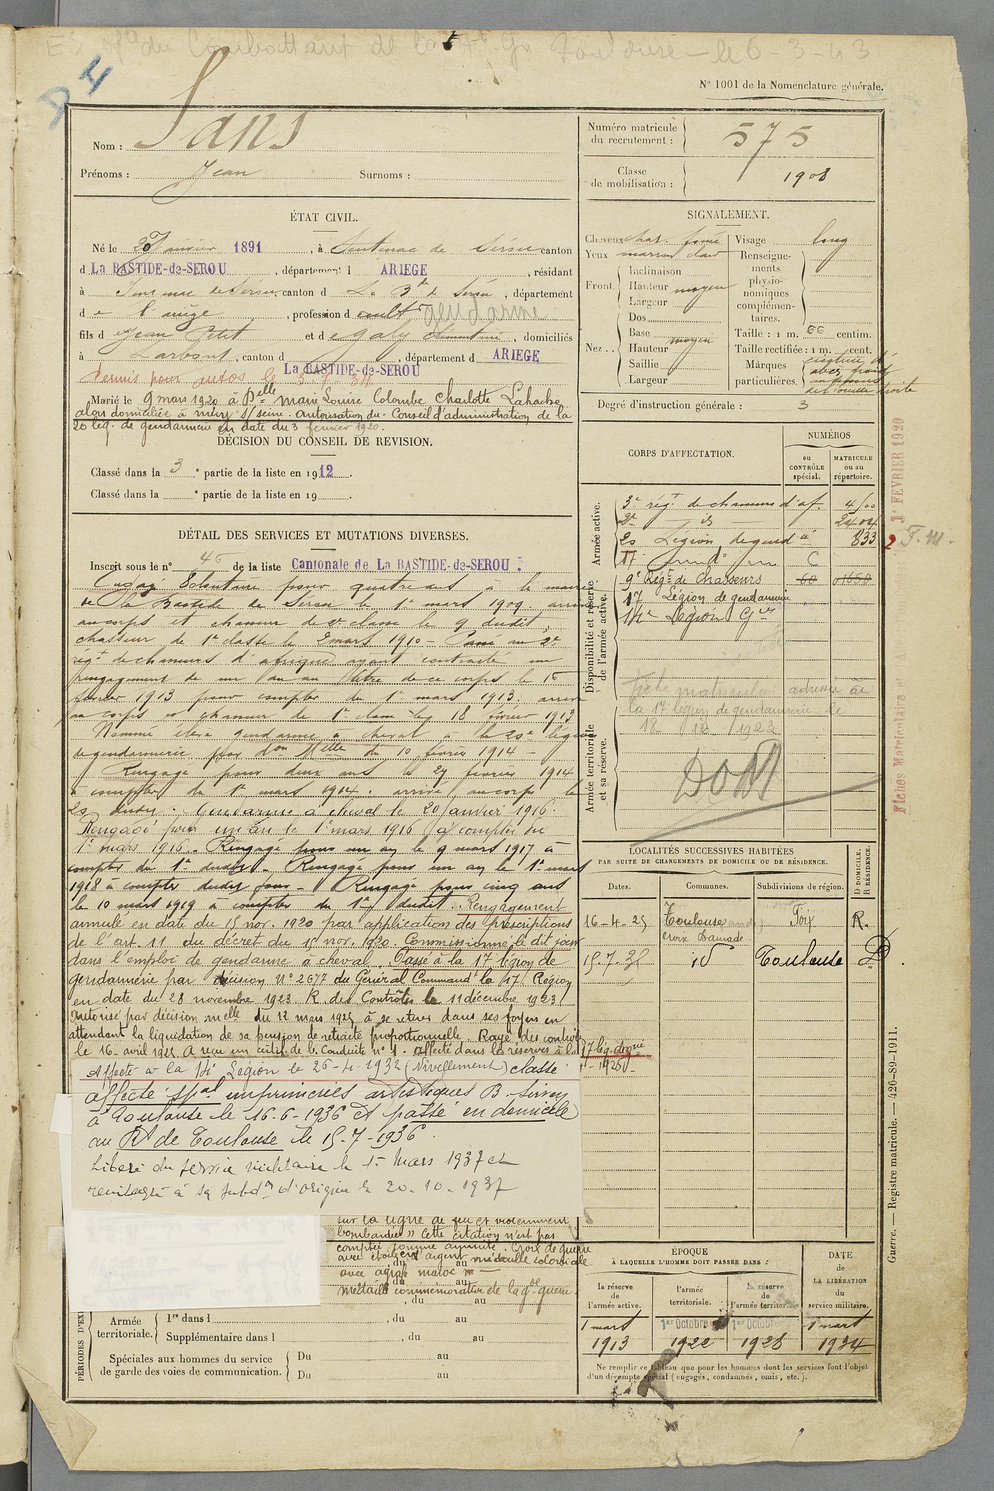 du Combattant de la Toulouse — le 6-3-43
N° 1001 de la Nomenclature générale.
Nom : Sans
Prénoms : Jean Surnoms :
Numéro matricule du recrutement : 575
Classe de mobilisation : 1908
ÉTAT CIVIL.
Né le 20 Janvier 1891, à Sentenac de Serou canton
d La BASTIDE-de-SEROU, département d ARIEGE, résidant
à Sentenac de Serou, canton d La Bde de Sérou, département
de l'ariège, profession d cult gendarme
fils d Jean Petit et de Galy Clémentine, domiciliés
à Larbont, canton d La BASTIDE-de-SEROU, départemt d ARIEGE
Permis pour autos le 3-7-34
Marié le 9 mars 1920 à Delle Marie Louise Colombe Charlotte Lahache
alors domiciliée à Méry s/ seine. autorisation du Conseil d'administration de la
20 lég. de gendarmerie en date du 3 février 1920.
SIGNALEMENT.
Cheveux chat. foncé Visage long
Yeux marron clair
Front. Inclinaison
Hauteur moyen
Largeur
Nez. Dos
Base moyen
Hauteur
Saillie
Largeur
Renseignements physionomiques complémentaires.
Taille : 1 m. 66 centim.
Taille rectifiée : 1 m. cent.
Marques particulières.
Degré d'instruction générale : 3
DÉCISION DU CONSEIL DE REVISION.
Classé dans la 3e partie de la liste en 1912.
Classé dans la e partie de la liste en 19
DÉTAIL DES SERVICES ET MUTATIONS DIVERSES.
Inscrit sous le n° 46 de la liste Cantonale de La BASTIDE-de-SEROU.
Engagé Volontaire pour quatre ans à la mairie
de la Bastide de Serou le 1er mars 1909 arrivé
au corps et chasseur de 2e classe le 9 dudit,
chasseur de 1e classe le 2 mars 1910 — Passé au 2e
régt de chasseurs d'afrique ayant contracté un
rengagement de un an au titre de ce corps le 16
février 1913 pour compter du 1er mars 1913, arrivé
au corps et chasseur de 1e classe le 18 février 1913
Nommé élève gendarme à cheval à la 20e légion
de gendarmerie par Don Mlle du 10 février 1914 —
Rengagé pour deux ans le 27 février 1914
à compter du 1er mars 1914. arrivé au corps le
20 dudit. Gendarme à cheval le 20 janvier 1916
Rengagé pour un an le 1er mars 1916 à compter du
1er mars 1916. Rengagé pour un an le 9 mars 1917 à
compter du 1er dudit. Rengagé pour un an le 1er mars
1918 à compter dudit jour — Rengagé pour cinq ans
le 10 mars 1919 à compter du 1er dudit. Rengagement
annulé en date du 15 nov. 1920 par application des prescriptions
de l'art. 11 du décret du 15 nov. 1920. Commissionné le dit jour
dans l'emploi de gendarme à cheval. Passé à la 17 légion de
gendarmerie par décision N° 2677 du Général Command la 17 Région
en date du 28 novembre 1923. R. des Contrôles le 11 décembre 1923.
Autorisé par décision melle du 12 mars 1925 à se retirer dans ses foyers en
attendant la liquidation de sa pension de retraite proportionnelle. Rayé des contrôles
le 16 avril 1925. A reçu un certif. de b. Conduite n° 1. affecté dans les réserves à la 17 lég. de gie
Affecté à la 14e Légion le 26-4-1932 (Nivellement) classé
affecté spal imprimeries artistiques B. Sirven
à Toulouse le 16-6-1936 et passé en domicile
au Rt de Toulouse le 15-7-1936.
Libéré du service militaire le 15 Mars 1937 et
renvoyé à sa subdon d'origine le 20.10.1937
sur la ligne de feu et violemment
bombardée » Cette citation n'est pas
comptée comme annuité. Croix de guerre
avec étoile argent médaille coloniale
avec agrafe maroc —
Médaille commémorative de la gde guerre.
PÉRIODES D'EX
Armée territoriale. 1re dans l , du au
Supplémentaire dans l , du au
Spéciales aux hommes du service de garde des voies de communication. Du au
Du au
CORPS D'AFFECTATION. NUMÉROS
au CONTRÔLE spécial. MATRICULE ou au répertoire.
Armée active.
3e régt de chasseurs d'af. 4100
2e id 2404
20 Légion de gend ie 833
17
Disponibilité et réserve de l'armée active.
9e Régt de Chasseurs 60 01650
17 Légion de gendarmerie
14e Légion Gie
Armée territoriale et sa réserve.
fiche matriculaire adressée à
la 17 légion de gendarmerie le
18 12 1923
DOM
1er FEVRIER 1920
LOCALITÉS SUCCESSIVES HABITÉES
PAR SUITE DE CHANGEMENTS DE DOMICILE OU DE RÉSIDENCE.
Dates. Communes. Subdivisions de région. D DOMICILE. R RÉSIDENCE.
16-4-25 Toulouse Foix R.
Croix Daurade
15.7.36 id Toulouse D.
ÉPOQUE
À LAQUELLE L'HOMME DOIT PASSER DANS :
la réserve de l'armée active. l'armée territoriale. la réserve de l'armée territor.
DATE DE LA LIBÉRATION du service militaire.
1 mars 1913 1er Octobre 1922 1er Octobre 1928 1 mars 1934
Ne remplir ce tableau que pour les hommes dont les services font l'objet
d'un décompte spécial (engagés, condamnés, omis, etc.).
Guerre. — Registre matricule. — 426-89-1911.